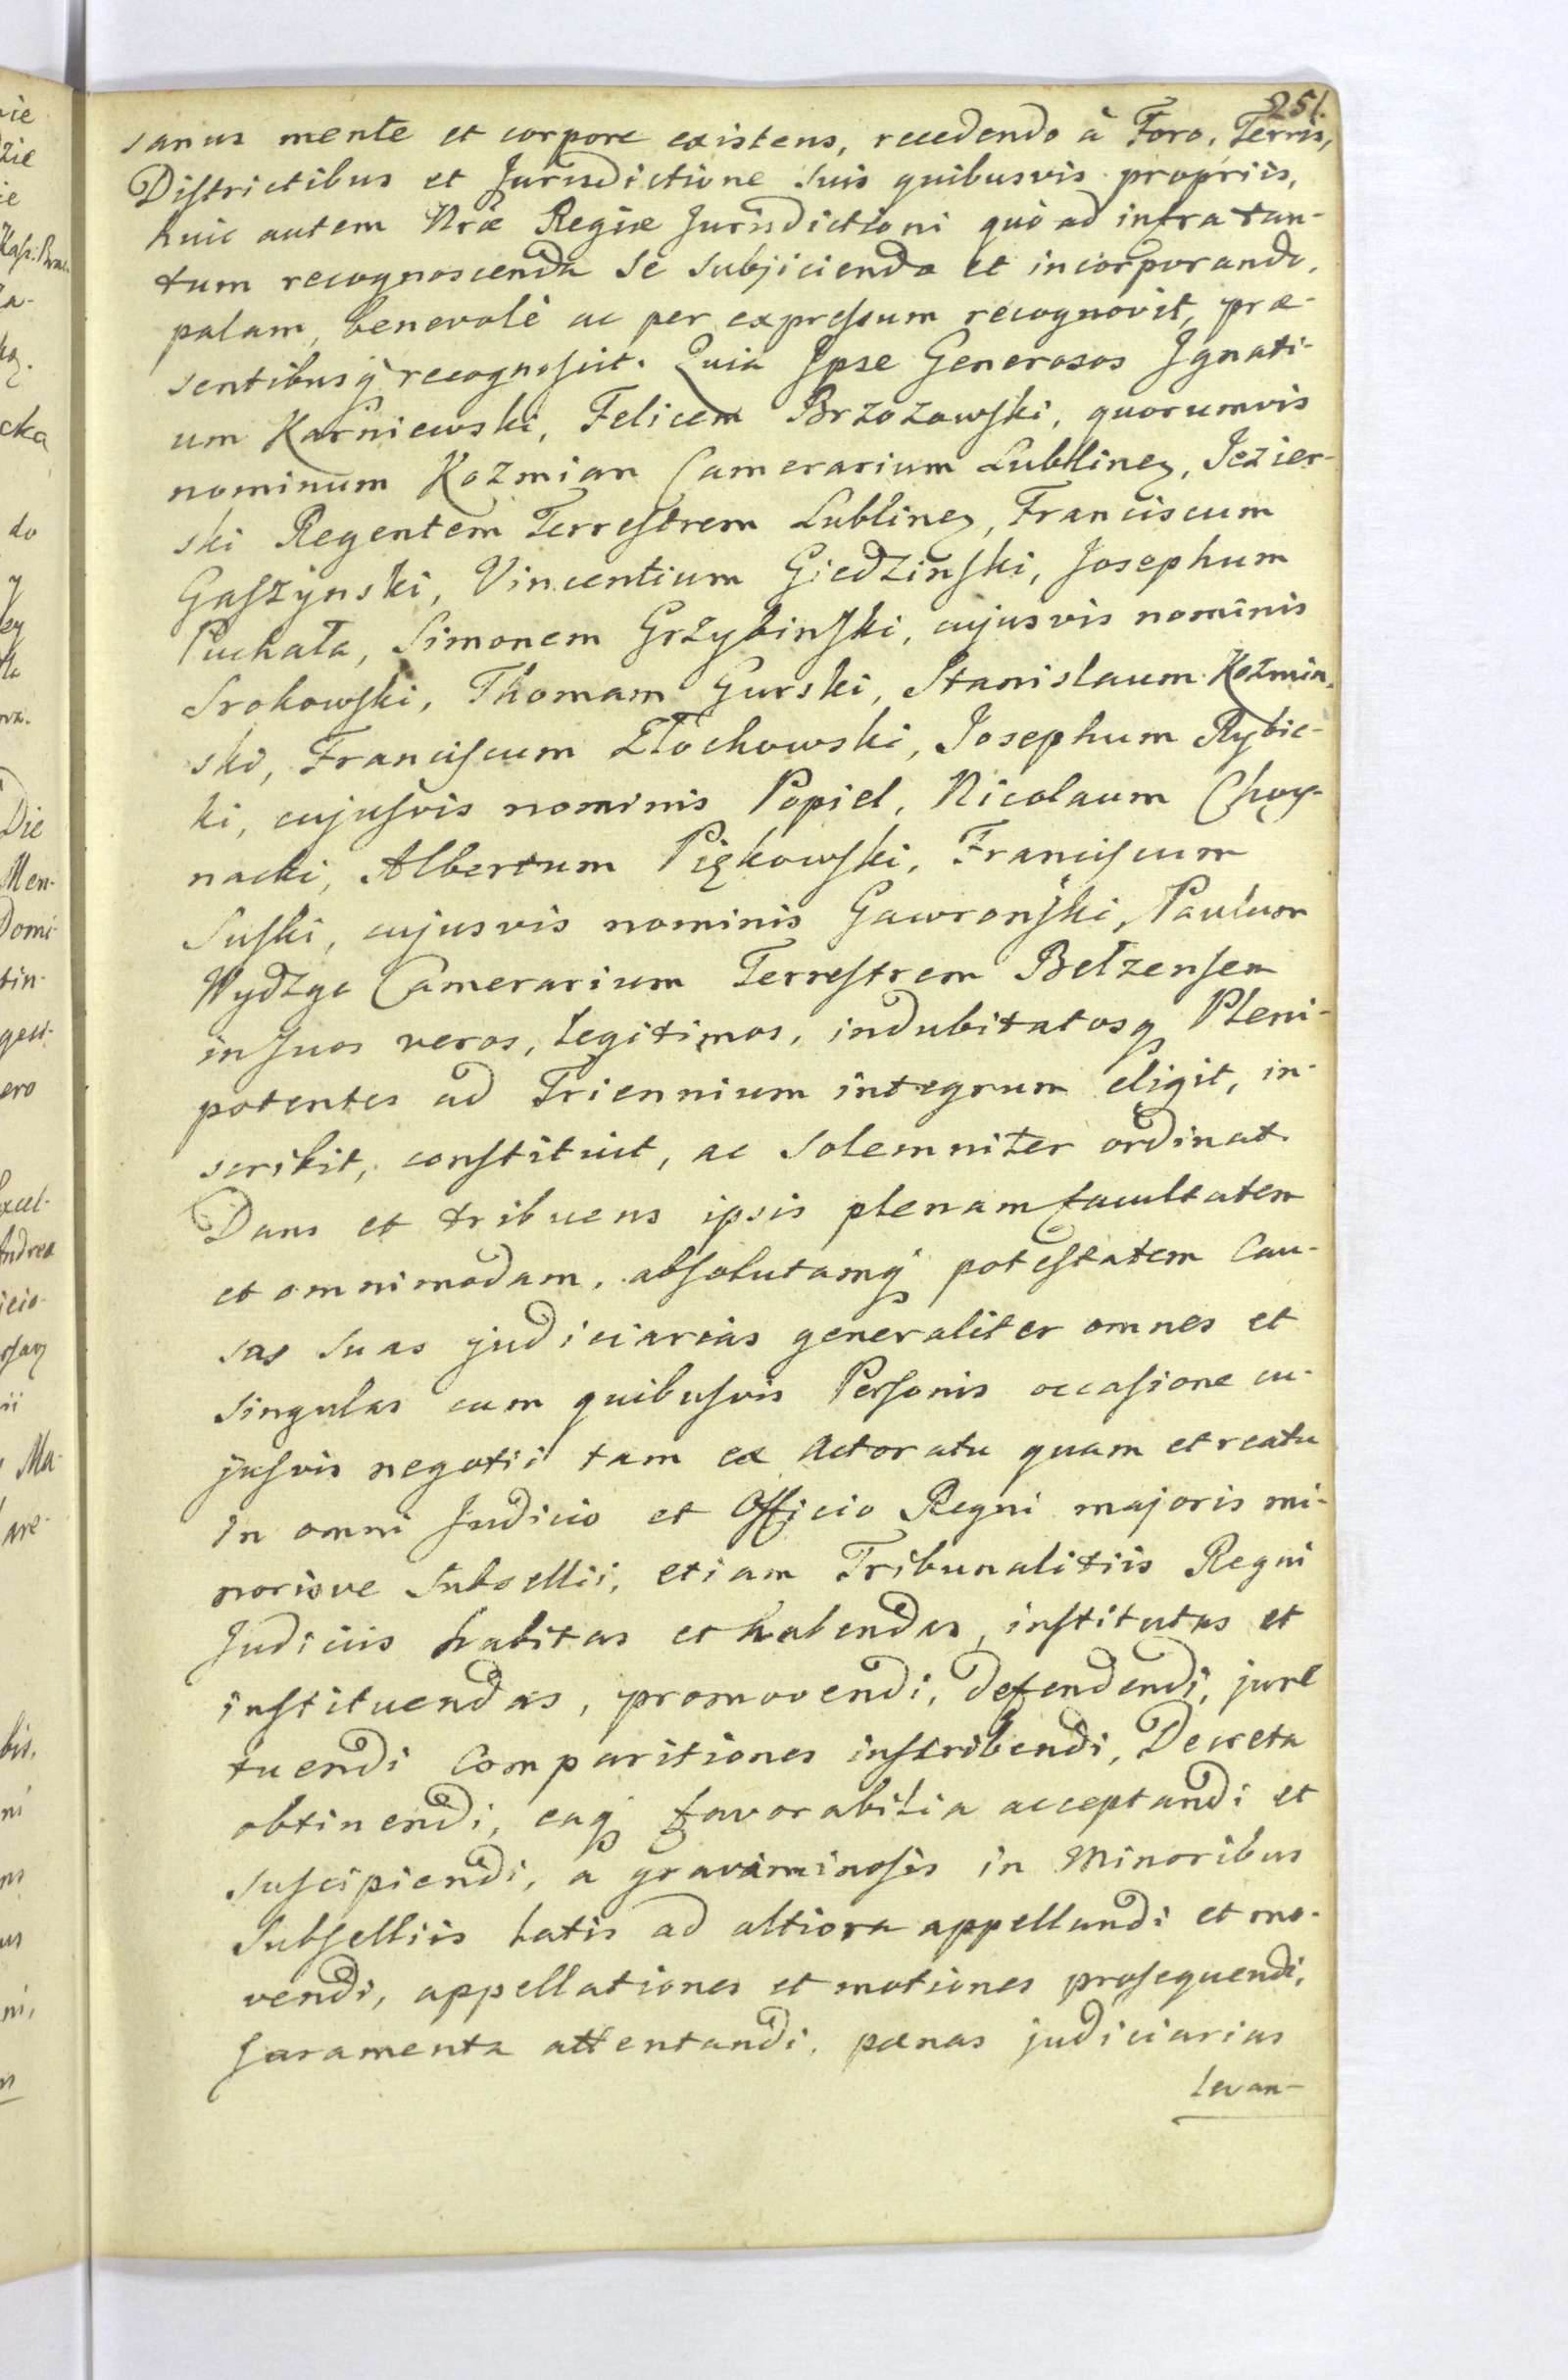 251.
sanus mente et corpore existens, recedendo à Foro, Terris,
Districtibus et Jurisdictione suis quibusvis propriis,
huic autem Nræ Regiæ Jurisdictioni quò ad infra tan-
tum recognoscenda se subjiciendo et incorporando,
palam, benevolè ac per expressum recognovit, præ-
sentibusq recognoscit. Quia Ipse Generosos Ignati-
um Karniewski, Felicem Brzozowski, quorumvis
nominum Kozmian Camerarium Lublinen, Jezier-
ski Regentem Terrestrem Lublinen, Franciscum
Gaszynski, Vincentium Giedzinski, Josephum
Puchała, Simonem Grzybinski, cujusvis nominis
Srokowski, Thomam Gurski, Stanislaum Kozmin-
ski, Franciscum Złochowski, Josephum Rybic-
ki, cujusvis nominis Popiel, Nicolaum Choy-
nacki, Albertum Piękowski, Franciscum
Suski, cujusvis nominis Gawronski, Paulum
Wydzga Camerarium Terrestrem Bełzensem
in suos veros, legitimos, indubitatosq Pleni-
potentes ad Triennium integrum eligit, in-
scribit, constituit, ac solemniter ordinat.
Dans et tribuens ipsis plenam facultatem
et omnimodam, absolutamq potestatem Cau-
sas suas judiciarias generaliter omnes et
singulas cum quibusvis Personis occasione cu-
jusvis negotii tam ex Actoratu quam et reatu
in omni Judicio et Officio Regni majoris mi-
norisve Subsellii, etiam Tribunalitiis Regni
Judiciis habitas et habendas, institutas et
instituendas, promovendi, defendendi, jure
tuendi Comparitiones inscribendi, Decreta
obtinendi, eaq favorabilia acceptandi et
suscipiendi, a graviminosis in Minoribus
Subselliis latis ad altiora appellandi et mo-
vendi, appellationes et motiones prosequendi,
Juramenta attentandi, pænas judiciarias
levan-